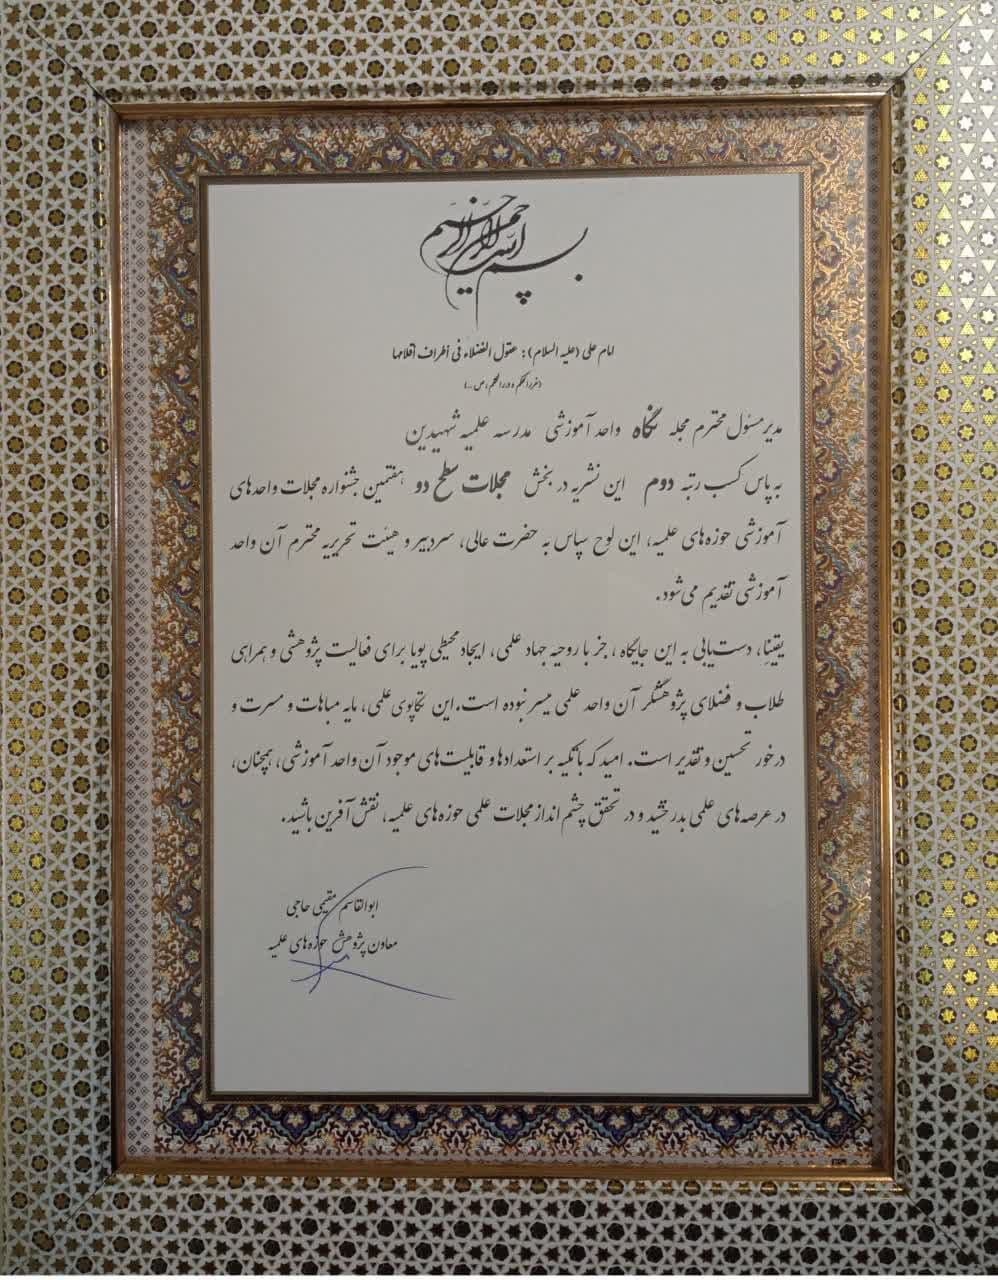 بسم الله الرحمن الرحیم
امام علی (علیه السلام): عقول الفضلاء فی أطراف أقلامها
(غررالحکم و دررالحکم، ص
مدیر مسئول محترم مجله نگاه واحد آموزشی مدرسه علمیه شهیدین
به پاس کسب رتبه دوم این نشریه در بخش مجلات سطح دو هفتمین جشنواره مجلات واحدهای
آموزشی حوزه‌های علمیه، این لوح سپاس به حضرت عالی، سردبیر و هیئت تحریریه محترم آن واحد
آموزشی تقدیم می‌شود.
یقیناً، دست‌یابی به این جایگاه، جز با روحیه جهاد علمی، ایجاد محیطی پویا برای فعالیت پژوهشی و همراهی
طلاب و فضلای پژوهشگر آن واحد علمی میسر نبوده است. این تکاپوی علمی، مایه مباهات و مسرت و
درخور تحسین و تقدیر است. امید که با تکیه بر استعدادها و قابلیت‌های موجود آن واحد آموزشی، همچنان،
در عرصه‌های علمی بدرخشید و در تحقق چشم انداز مجلات علمی حوزه‌های علمیه، نقش آفرین باشید.
ابوالقاسم مقیمی حاجی
معاون پژوهش حوزه‌های علمیه